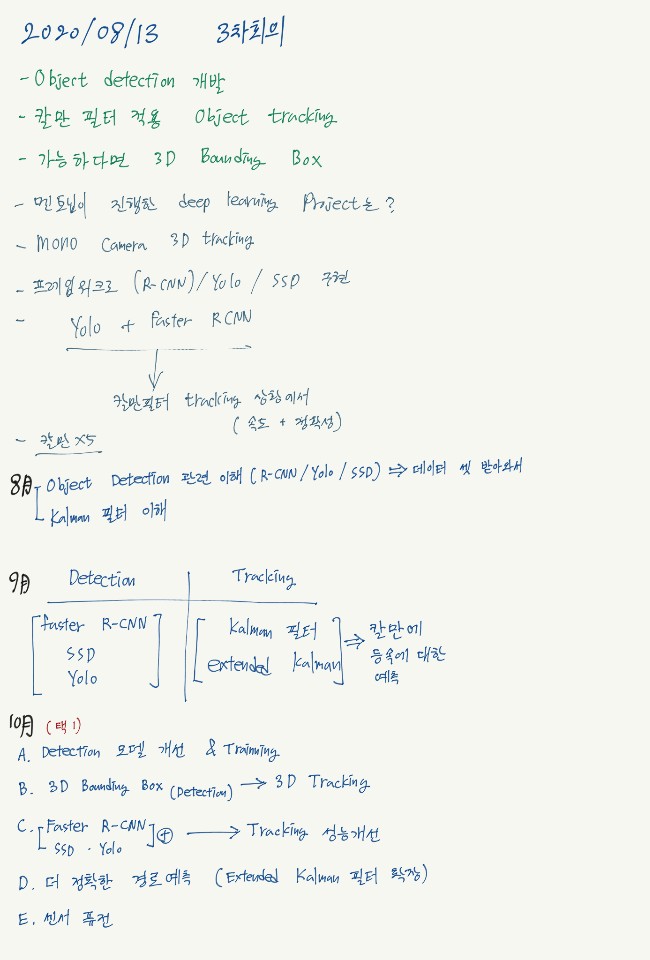 2020/08/13 3차회의
- Object detection 개발
- 칼만 필터 적용 Object tracking
- 가능하다면 3D Bounding Box
- 멘토님이 진행한 deep learning Project는?
- mono Camera 3D tracking
- 프레임워크로 (R-CNN)/Yolo / SSD 구현
- Yolo + faster RCNN
칼만필터 tracking 상황에서
(속도 + 정확성)
- 칼만 X5
8月 Object Detection 관련 이해 (R-CNN/Yolo/SSD) ⇒ 데이터 셋 받아와서
Kalman 필터 이해
9月 Detection Tracking
faster R-CNN Kalman 필터 ⇒ 칼만에
SSD 등속에 대한
Yolo extended Kalman 예측
10月 (택1)
A. Detection 모델 개선 & Trainning
B. 3D Bounding Box (Detection) → 3D Tracking
C. [Faster R-CNN] ⊕ → Tracking 성능개선
SSD · Yolo
D. 더 정확한 경로예측 (Extended Kalman 필터 확장)
E. 센서 퓨전